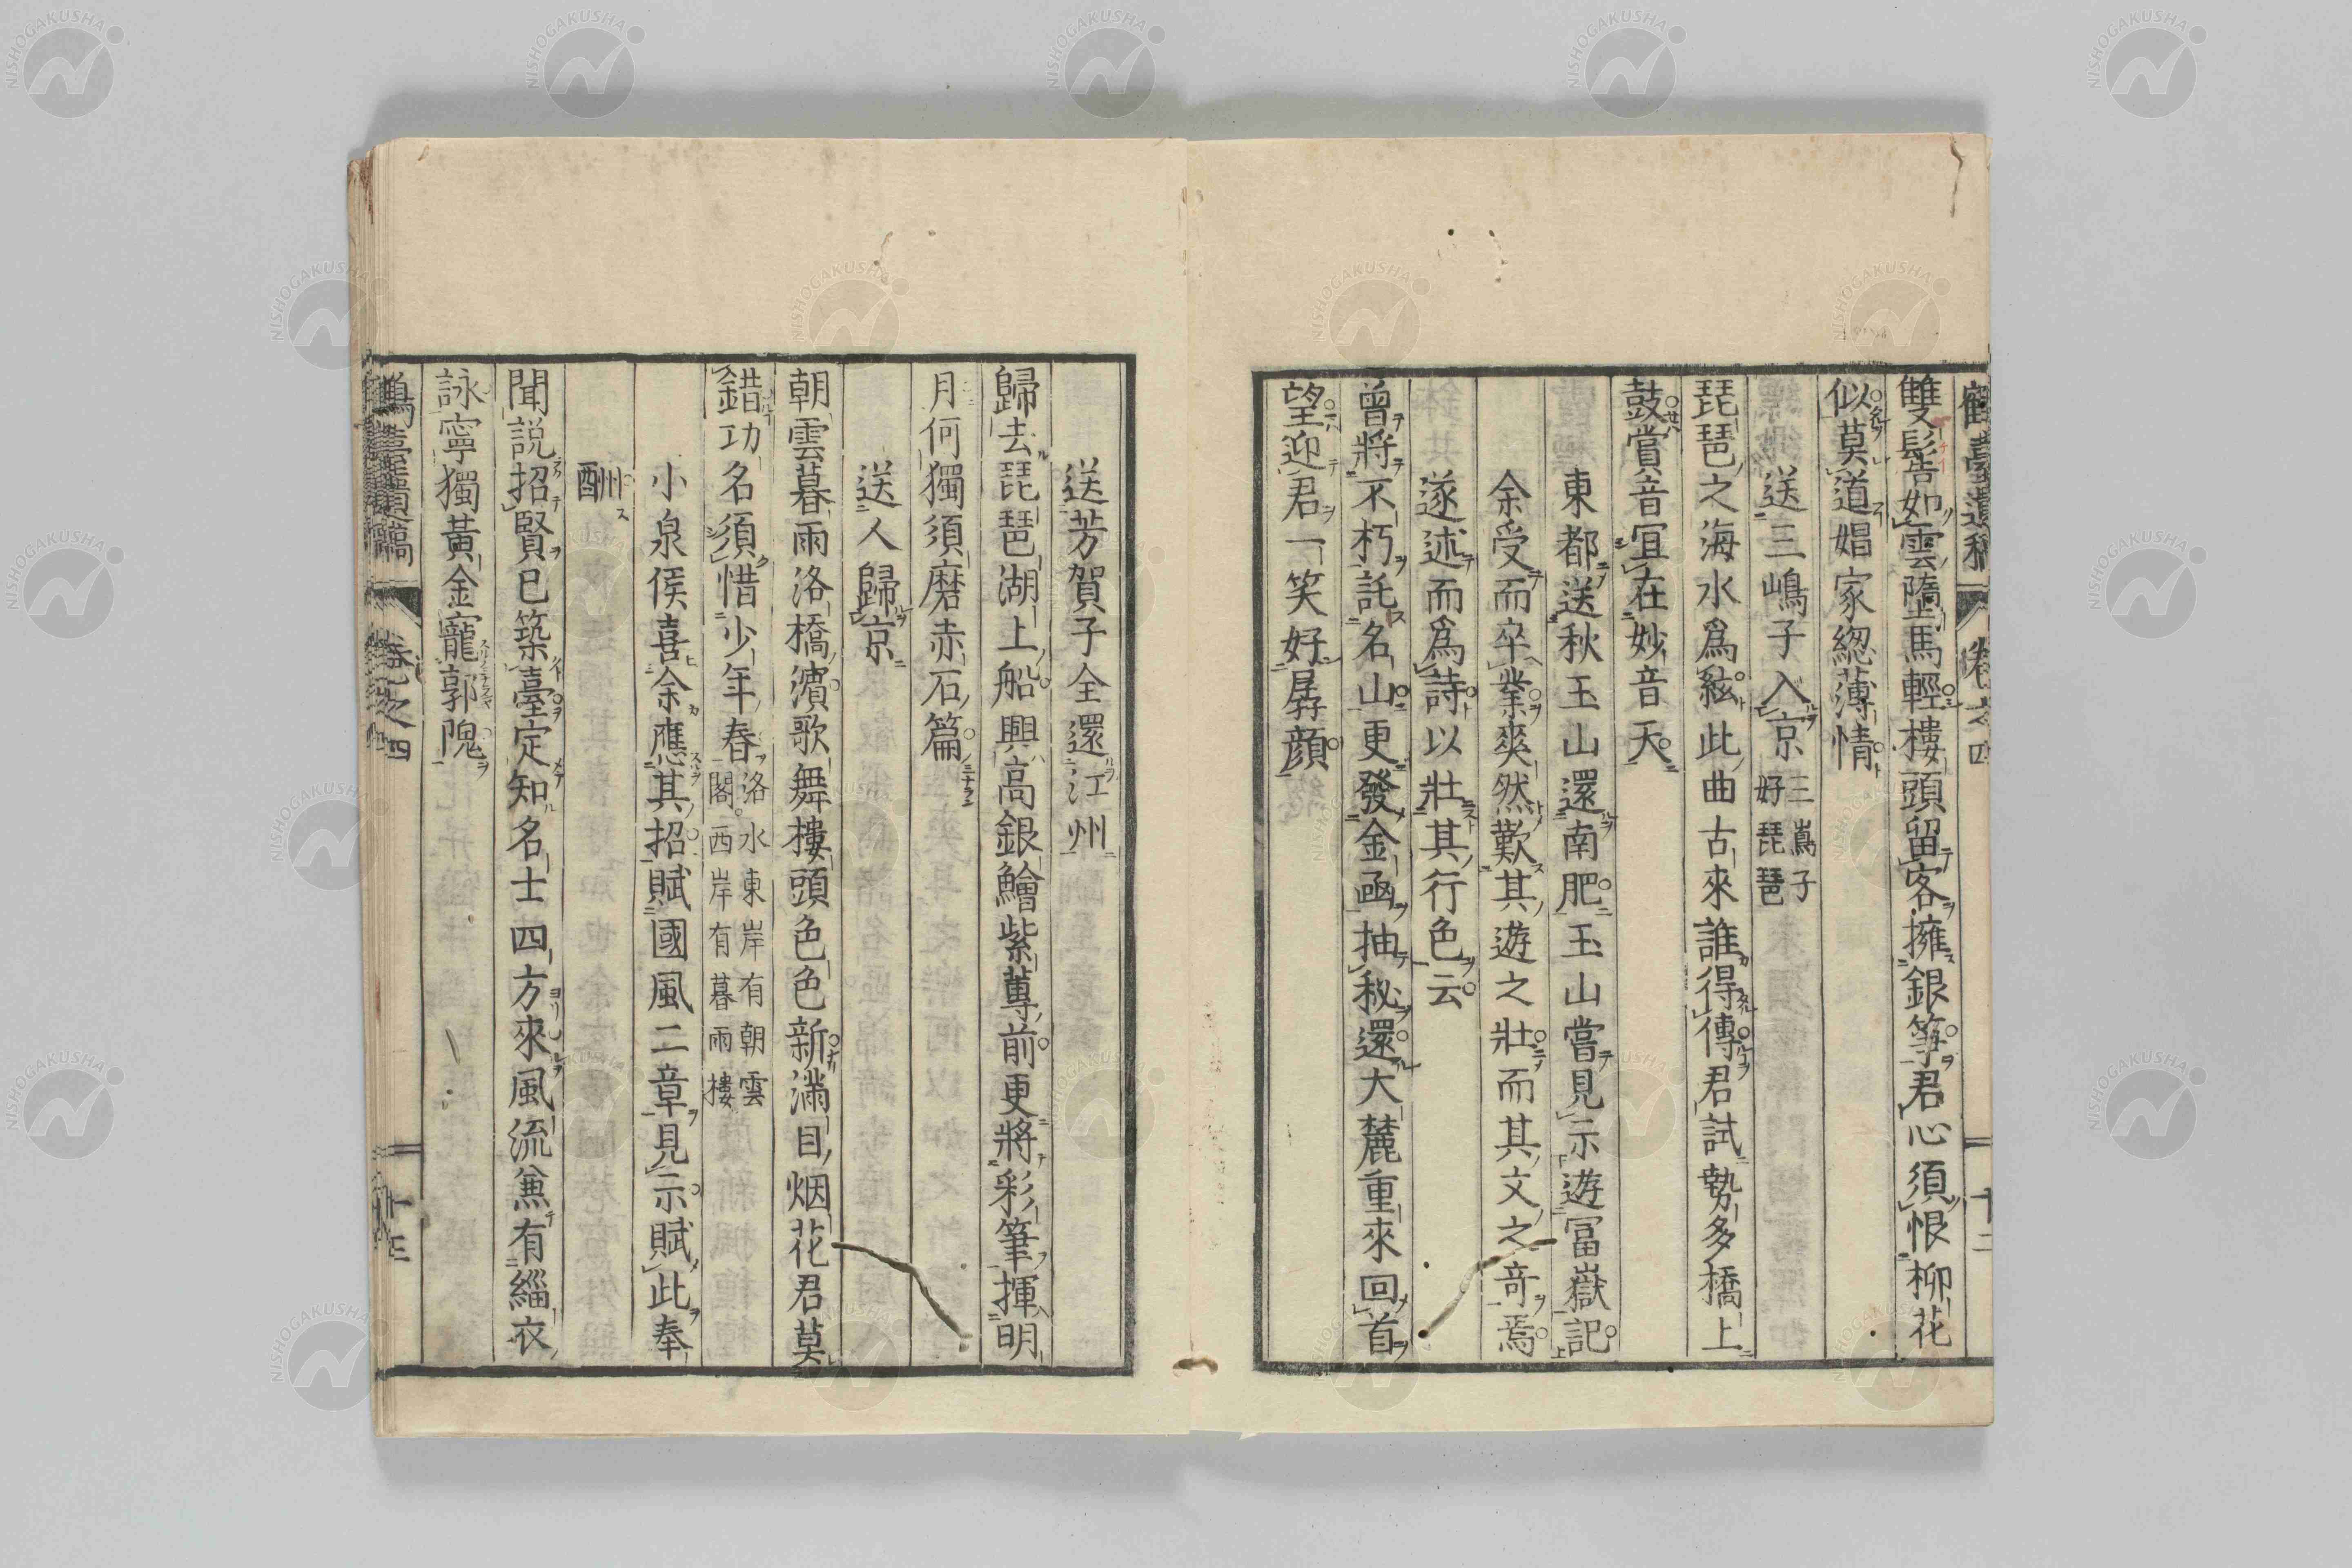 鶴臺遺稿 卷之四 十二
雙髻如雲墮馬輕樓頭留客擁銀箏君心須恨柳花
似莫道娼家總薄情
送三嶋子入京三嶌子好琵琶
琵琶之海水爲絃此曲古來誰得傳君試勢多橋上
鼓賞音宜在妙音天
東都送秋玉山還南肥玉山當見示遊冨嶽記
余受而卒業爽然歎其遊之壯而其文之竒焉
遂述而爲詩以壯其行色云
曾將不朽託名山更發金凾抽秘還大麓重來回首
望迎君一笑好孱顔
送芳賀子全還江州
歸去琵琶湖上船興高銀鱠紫蓴前更將彩筆揮明
月何獨須磨赤石篇
送人歸京
朝雲暮雨洛橋濱歌舞樓頭色色新滿目烟花君莫
錯功名須惜少年春洛水東岸有朝雲閣西岸有暮雨樓
小泉侯喜余應其招賦國風二章見示賦此奉
酬
聞説招賢已築臺定知名士四方來風流兼有緇衣
詠寧獨黃金寵郭隗
鶴臺遺稿 卷之四 十三
NISHOGAKUSHA